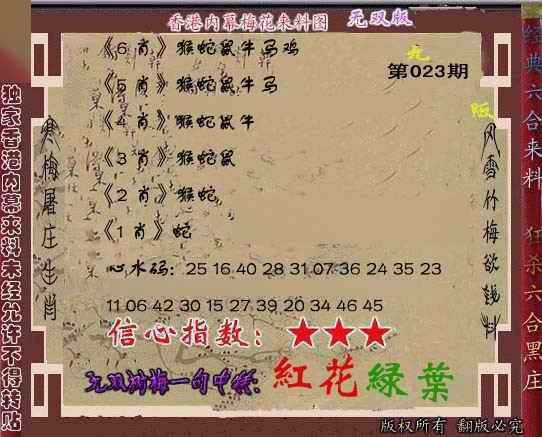 香港内幕梅花来料图 无双版
《6 肖》猴蛇鼠牛马鸡
第023期
《5 肖》猴蛇鼠牛马
《4 肖》猴蛇鼠牛
《3 肖》猴蛇鼠
《2 肖》猴蛇
《1 肖》蛇
心水码：25 16 40 28 31 07 36 24 35 23
11 06 42 30 15 27 39 20 34 46 45
信心指数：★★★
一句中特：紅花綠葉
版权所有 翻版必究
独家香港内幕来料未经允许不得转贴
寒梅屠庄生肖
风雪竹梅欲钱料
经典六合来料 狂杀六合黑庄